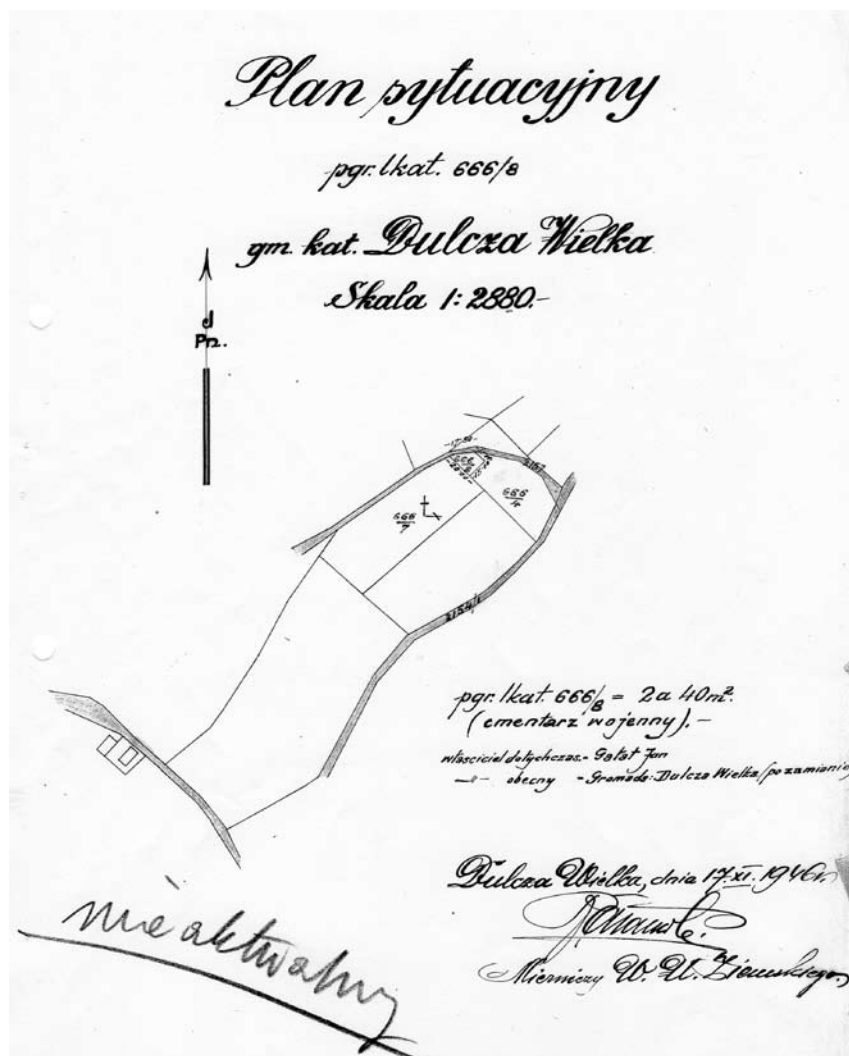 Plan sytuacyjny
pgr. lkat. 666/8
gm. kat. Dulcza Wielka
Skala 1:2880.-
Pn.
17.50
666
8
2157
666
7
666
2154/1
pgr. lkat. 666/8 = 2a 40m².
(cmentarz wojenny).-
właściciel dotychczas.- Gałat Jan
-"- obecny - Gromada: Dulcza Wielka (po zamianie)
Dulcza Wielka, dnia 17.XI.1946r.
Mierniczy W. U. Ziemskiego
nie aktualny